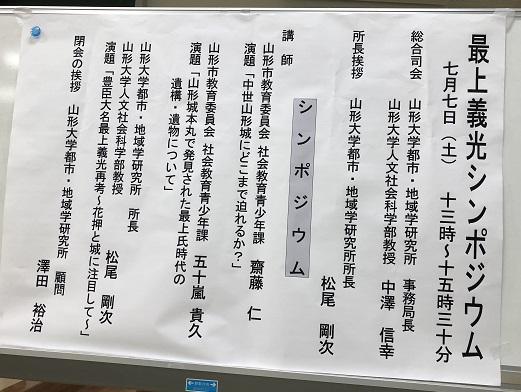 最上義光シンポジウム
七月七日（土）　十三時～十五時三十分
総合司会　山形大学都市・地域学研究所　事務局長
山形大学人文社会科学部教授　中澤　信幸
所長挨拶　山形大学都市・地域学研究所所長
松尾　剛次
シンポジウム
講師
山形市教育委員会　社会教育青少年課　齋藤　仁
演題「中世山形城にどこまで迫れるか？」
山形市教育委員会　社会教育青少年課　五十嵐　貴久
演題「山形城本丸で発見された最上氏時代の
遺構・遺物について」
山形大学都市・地域学研究所　所長
山形大学人文社会科学部教授　松尾　剛次
演題「豊臣大名最上義光再考～花押と城に注目して～」
閉会の挨拶　山形大学都市・地域学研究所　顧問
澤田　裕治